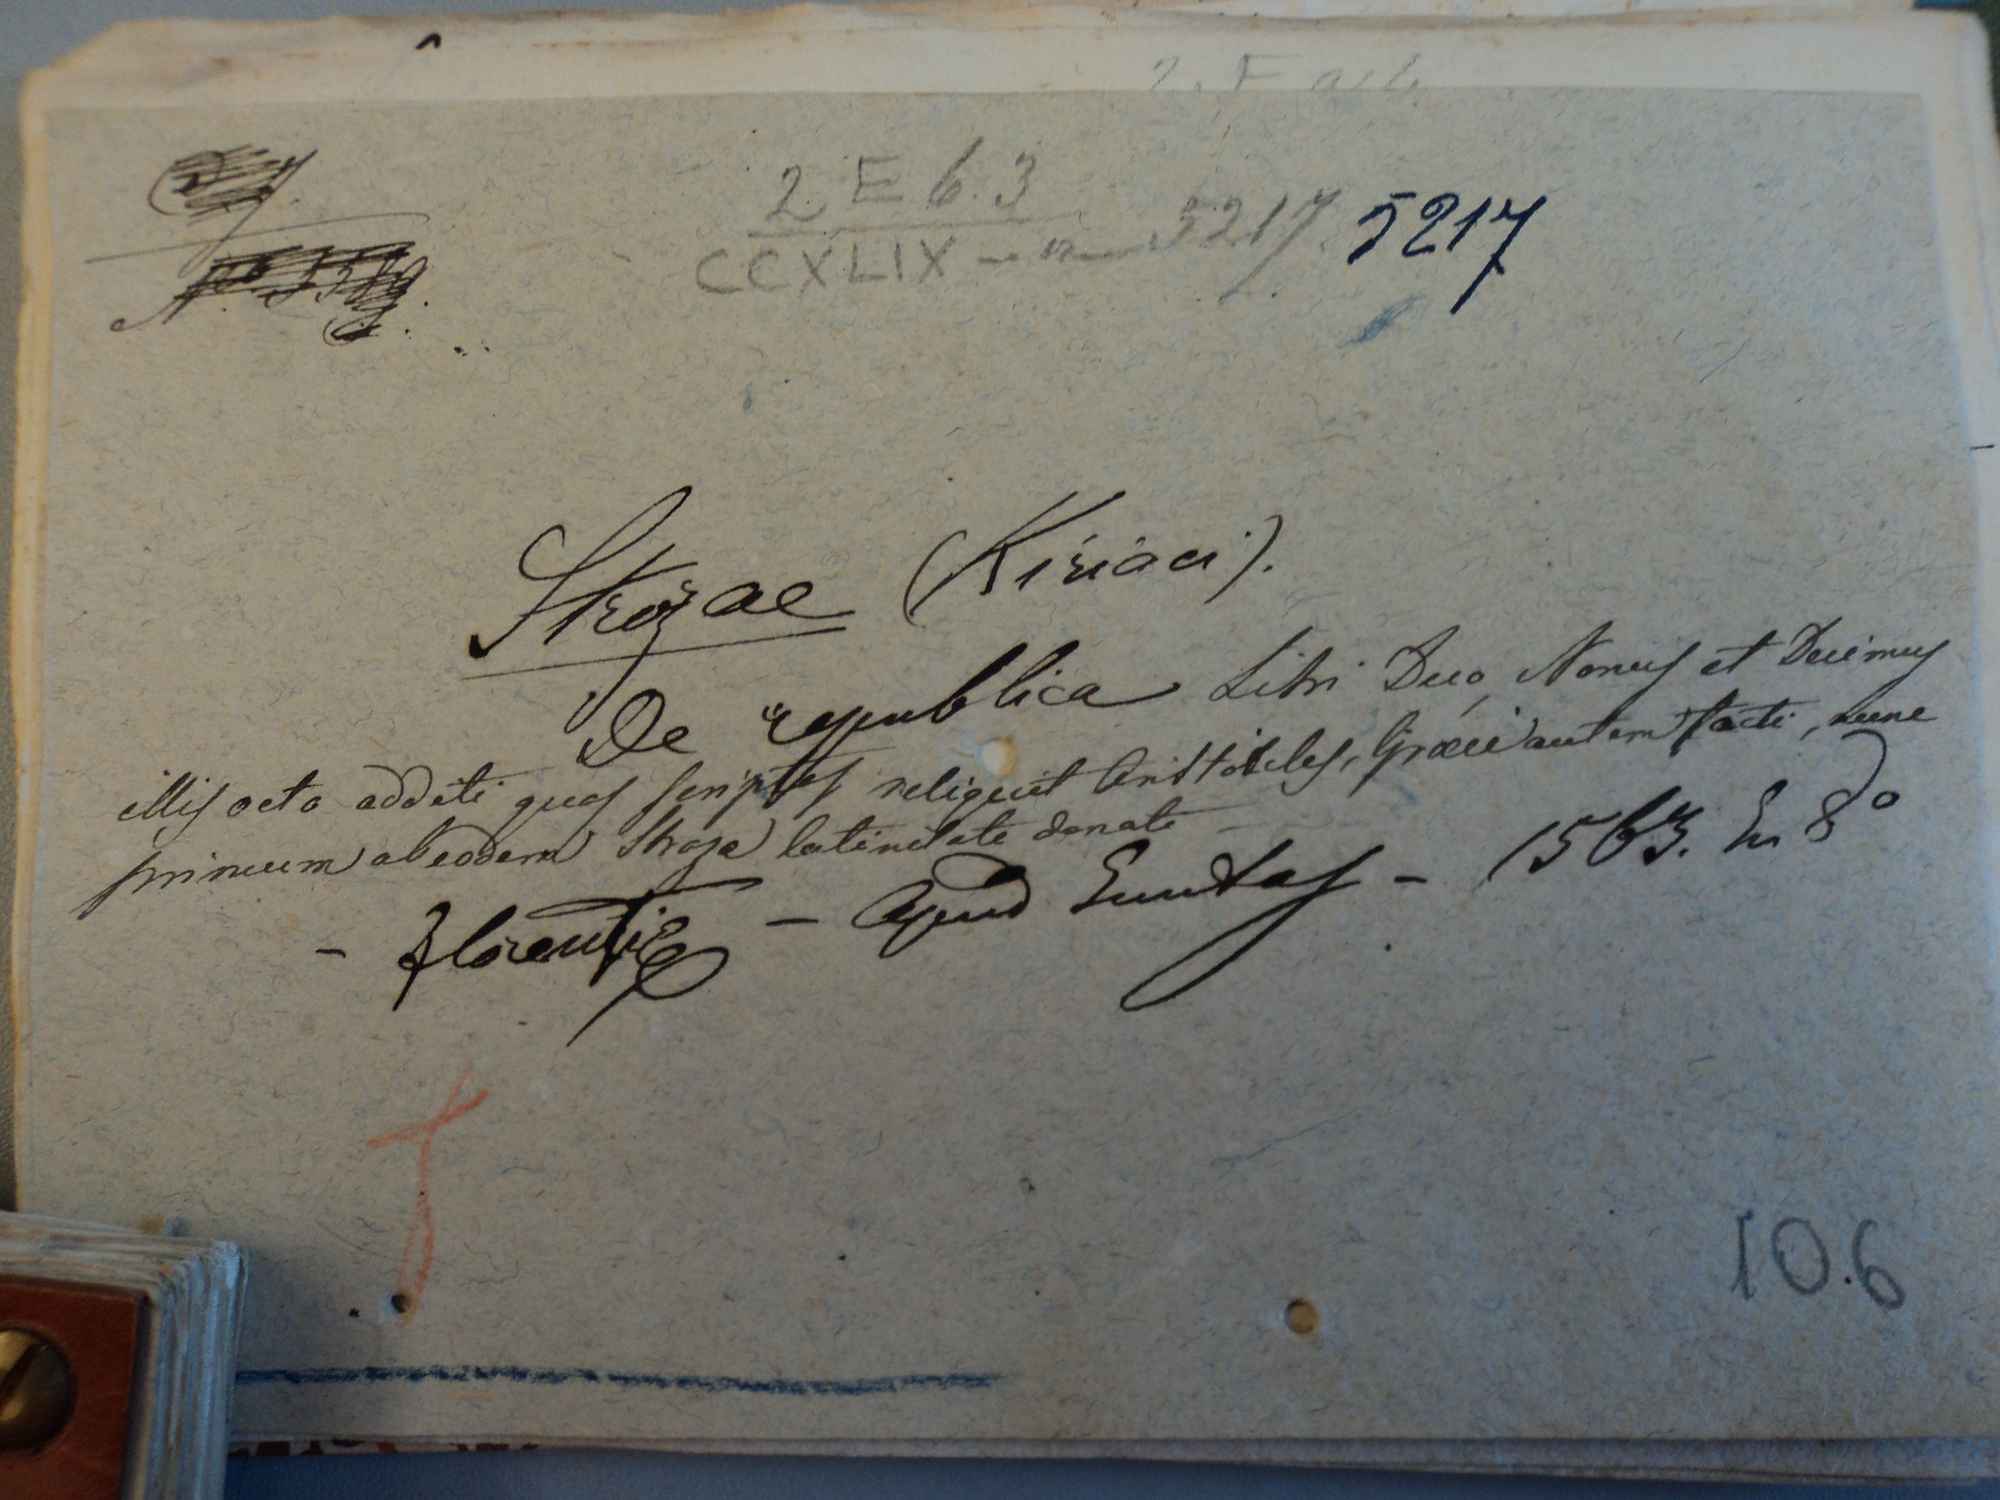 2 E 6.3
CCXLIX - n - 5217. 5217
Strozae (Kiriaci).
De republica Libri Duo, Nonus et Decimus
illis octo additi quos scriptos reliquit Aristoteles, Graeci autem facti, nunc
primum ab eodem Stroza latinitate donati -
- Florentiae - Apud Juntas - 1563. In 8º
10.6